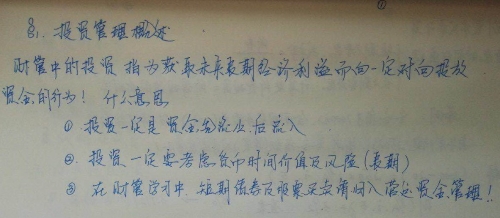 ①
§1. 投资管理概述
财管中的投资 指为获取未来长期经济利益而向一定对向投放
资金的行为! 什么意思
① 投资一定是资金先流出后流入
②. 投资一定要考虑货币时间价值及风险(长期)
③ 在财管学习中 短期债券及股票买卖请归入营运资金管理!!